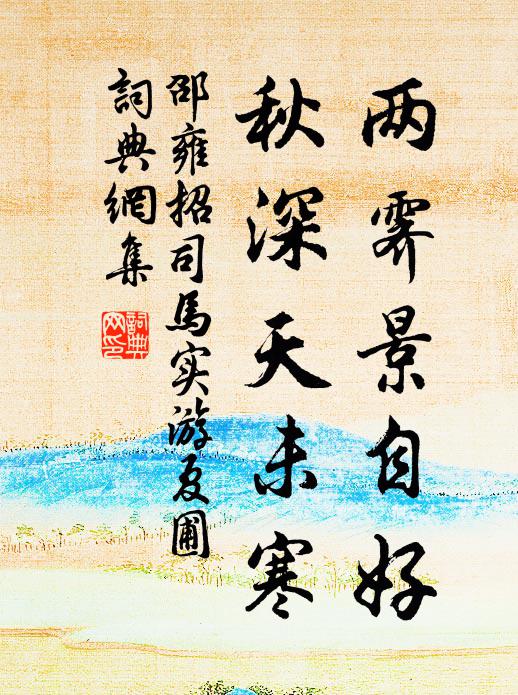 两霁景自好
秋深天未寒
邵雍招司馬实游夏圃
詞典網集
詞典
网印